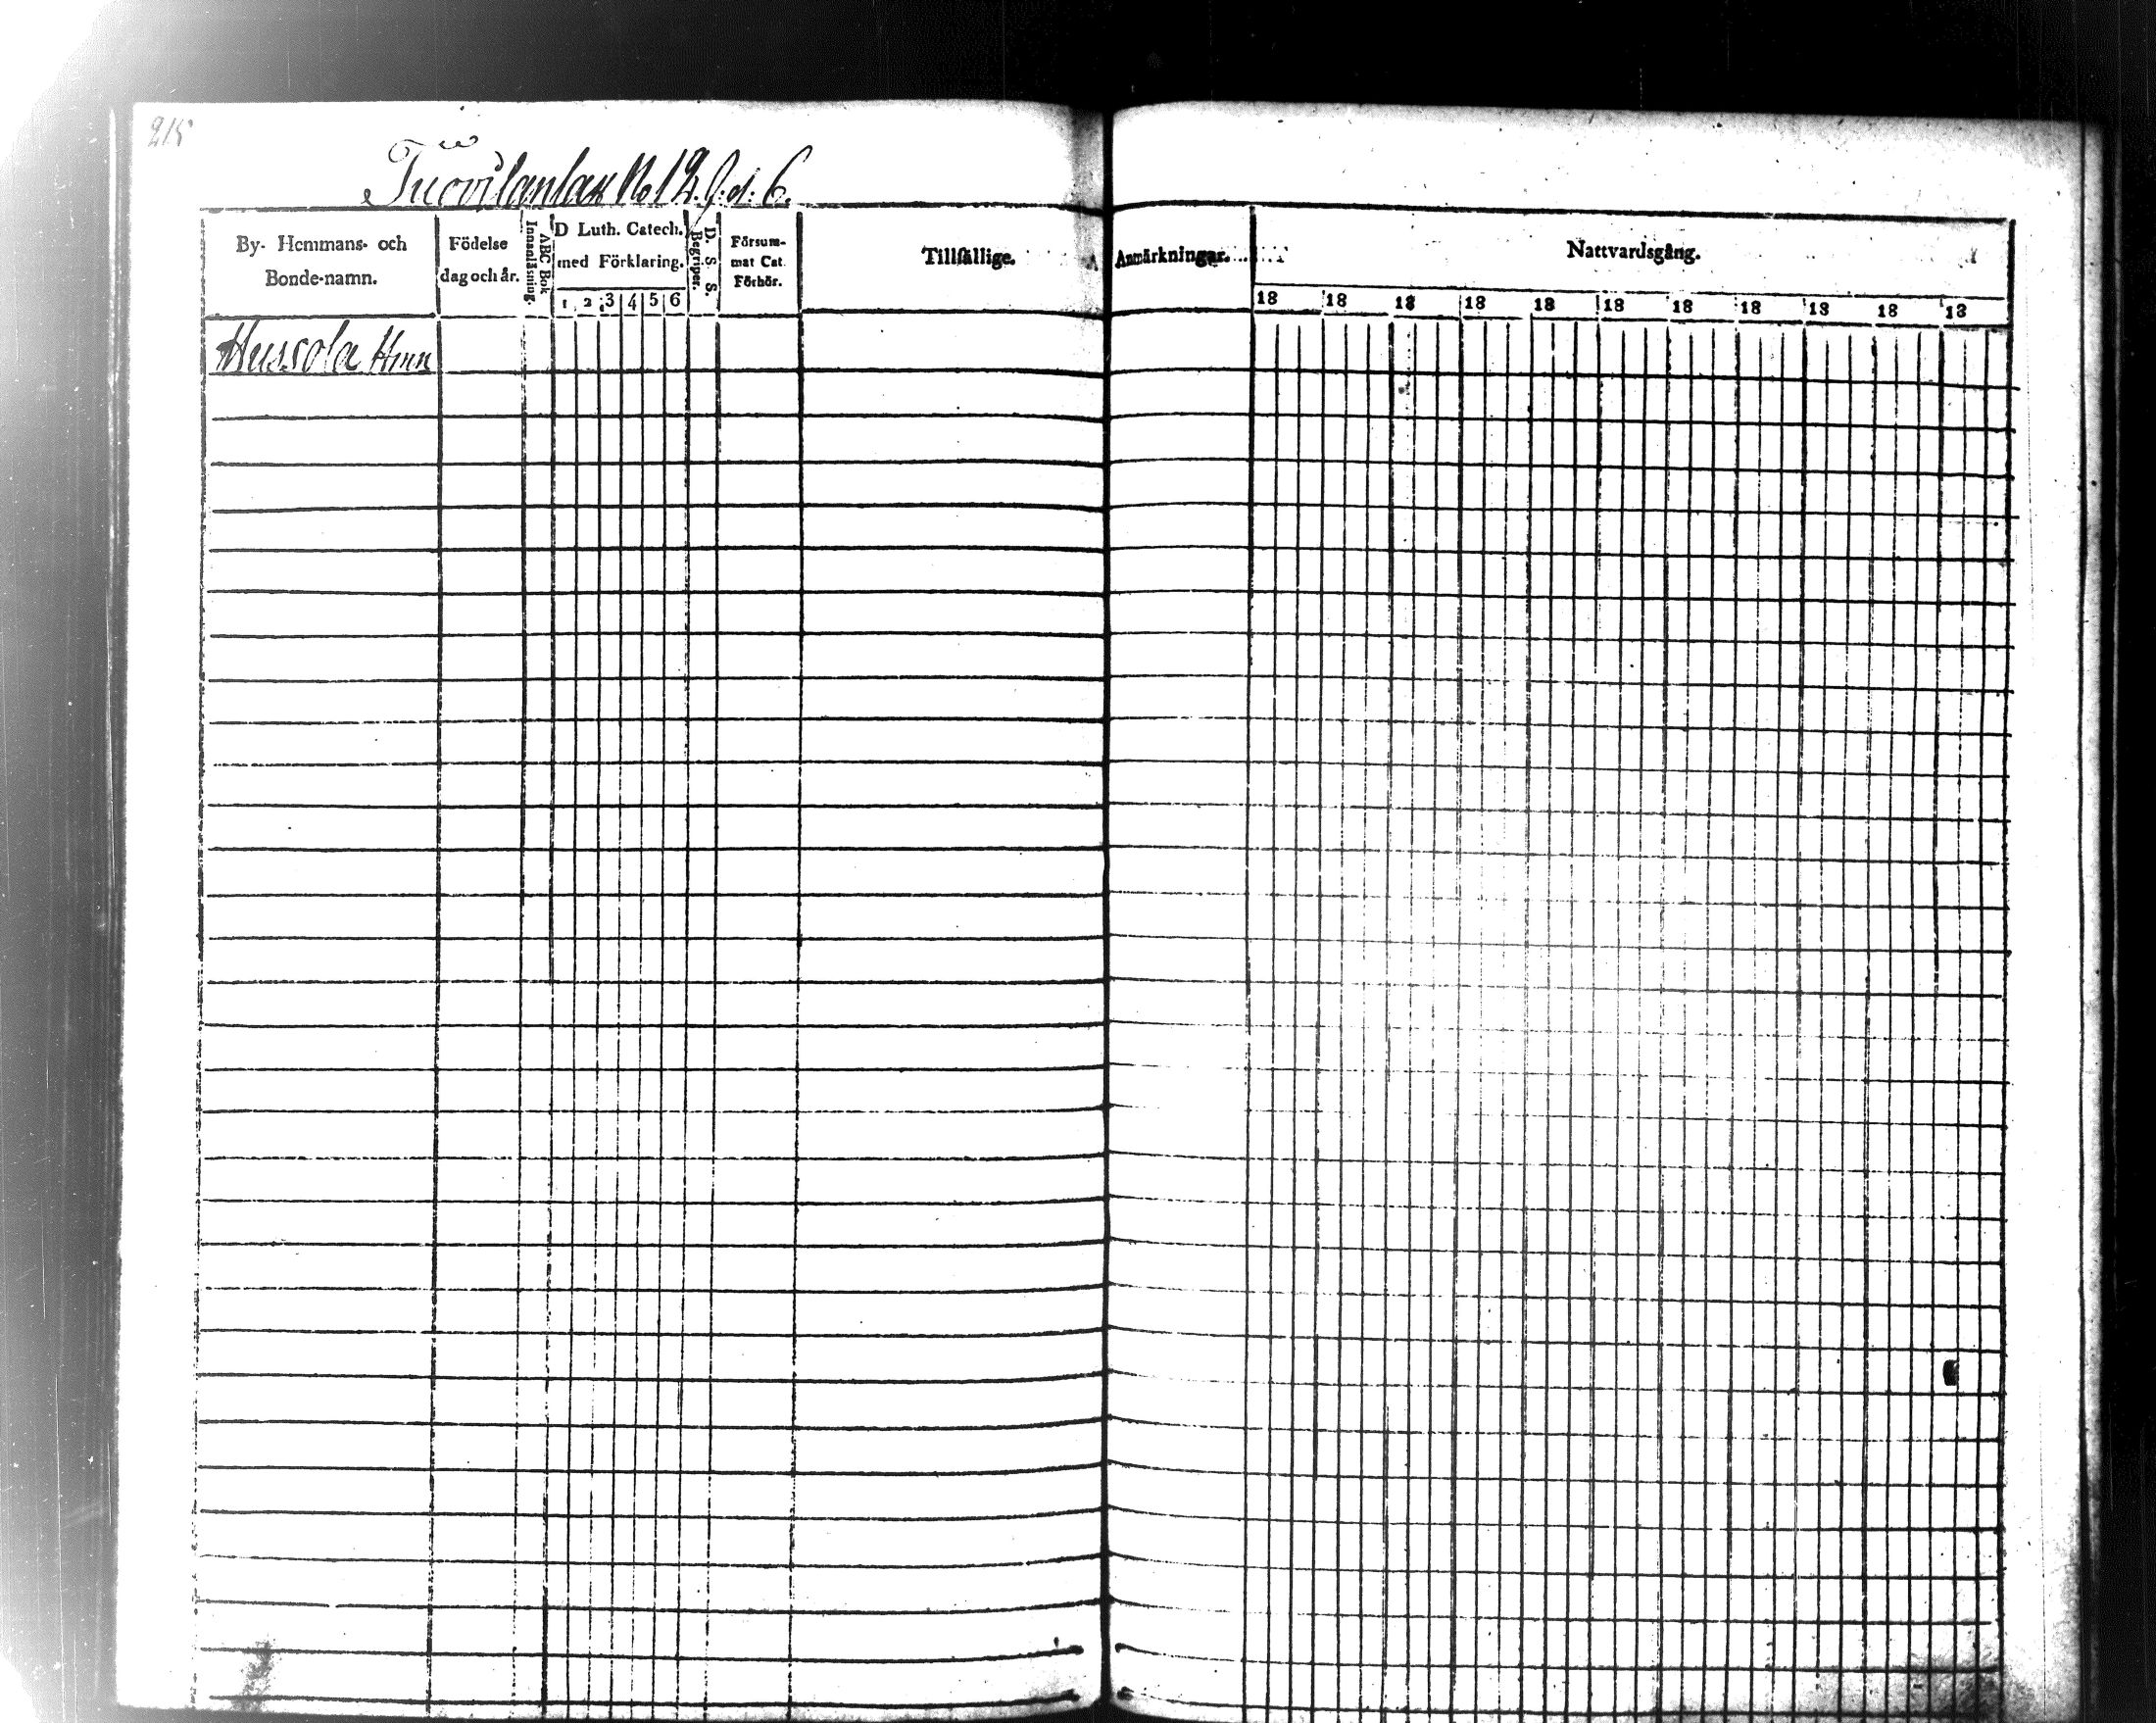 215
Tuovilanlax No 12. f.d. 6.
By- Hemmans- och Bonde-namn.
Födelse dag och år.
ABC Bok Innanläsning.
D Luth. Catech. med Förklaring.
1 2 3 4 5 6
D. S. S. Begriper.
Försum- mat Cat. Förhör.
Tillfällige.
Anmärkningar.
Nattvardsgång.
18 18 18 18 18 18 18 18 18 18 18
Hussola Hmn